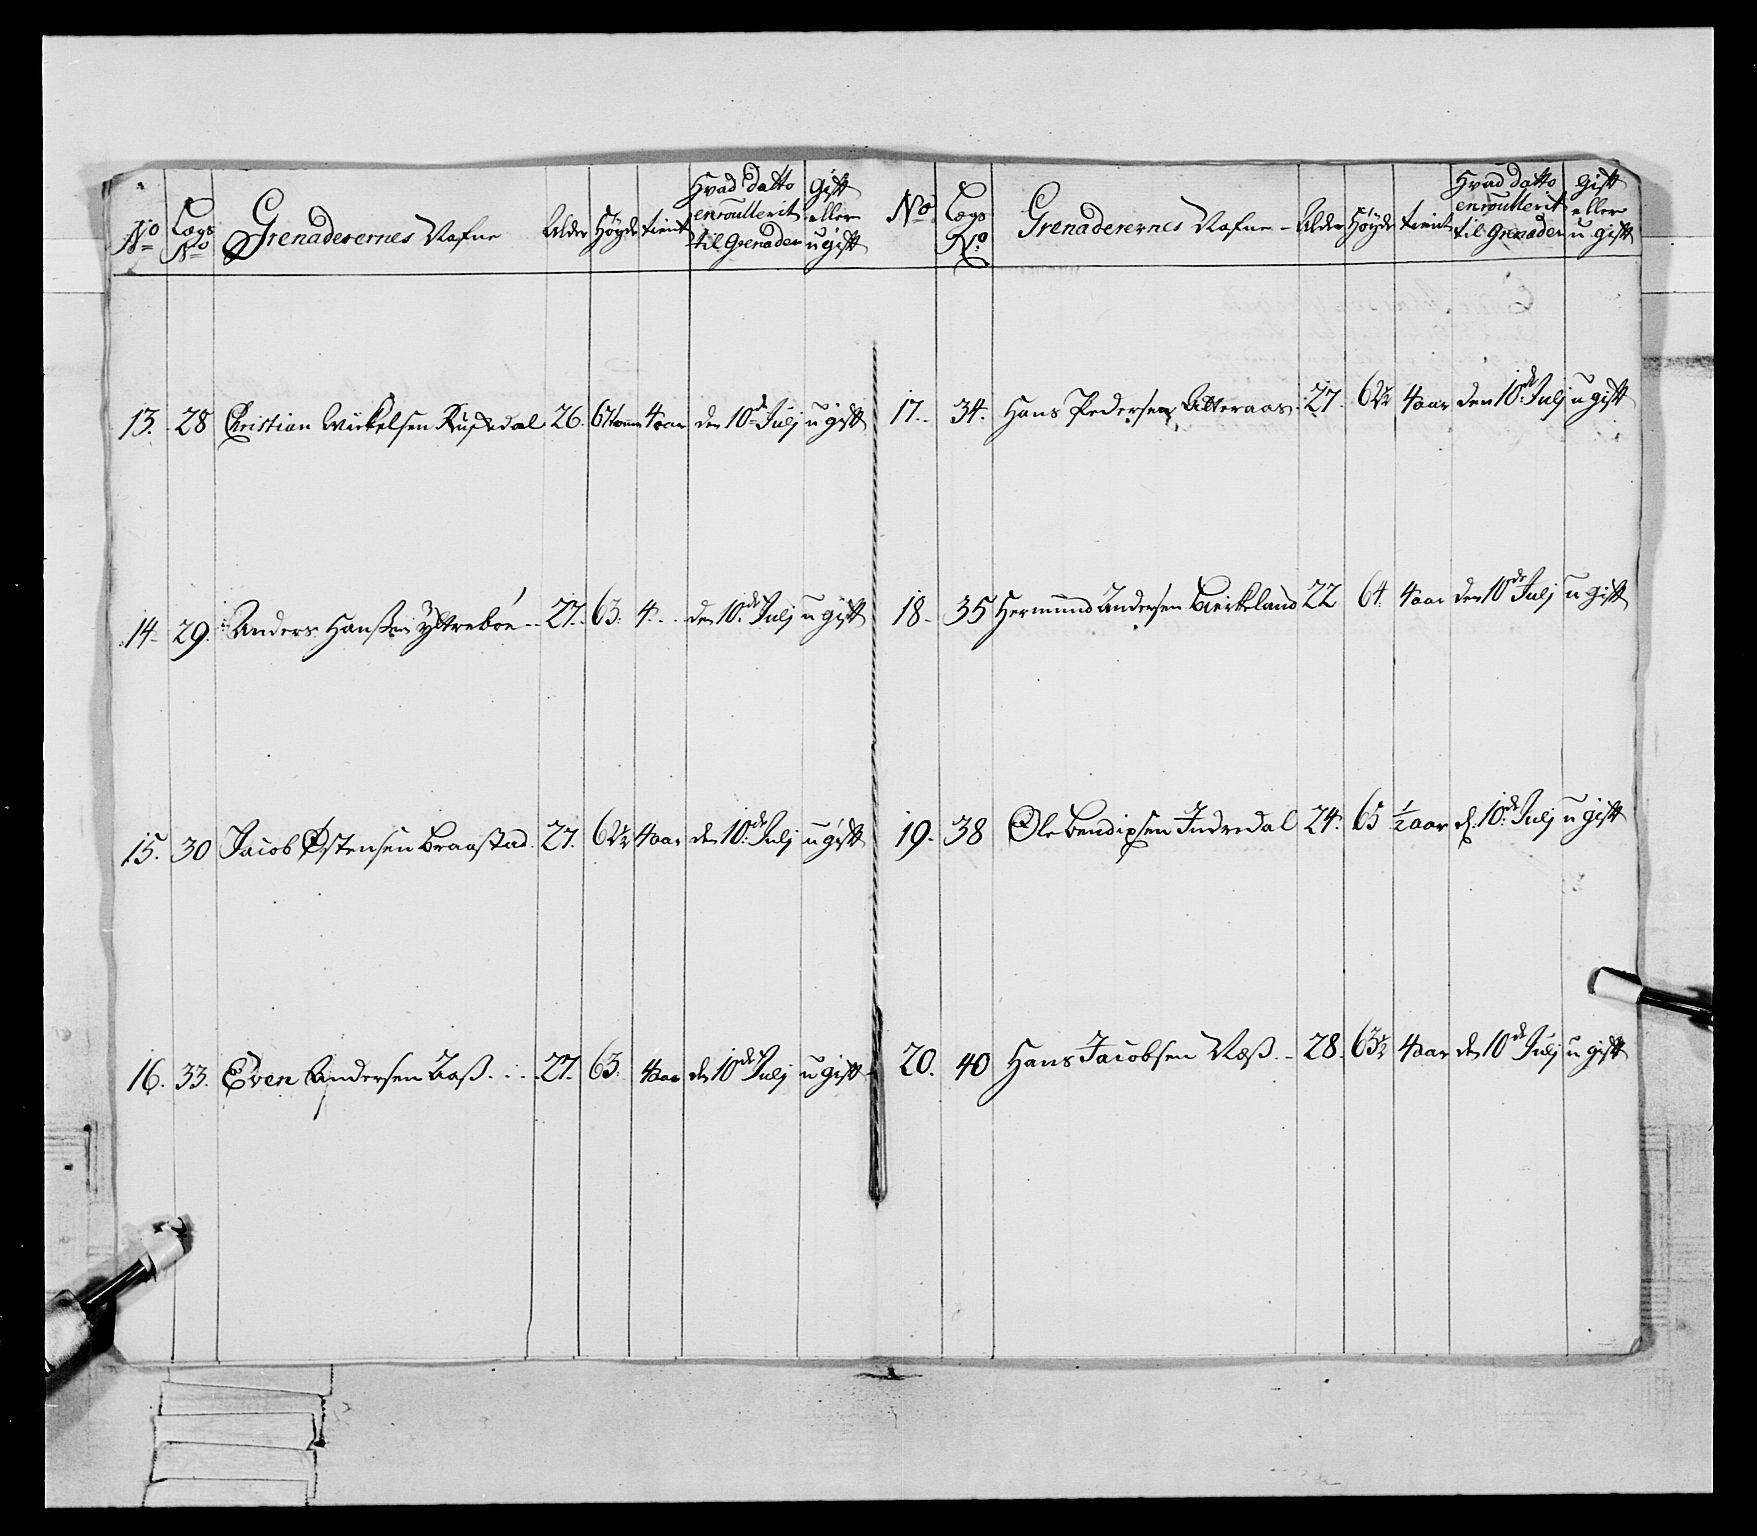 No Lægs No Grenaderernes Nafne Alder Höyde tient Hvad datto enroullerit til Grenader gift eller ugift
13. 28 Christian Mickelsen 26. 67 tom 4 aar den 10de Julj ugift
14. 29. Anders Hanssen Yttreböe 27. 63. 4. den 10de Julj ugift
15. 30 Jacob Ostensen Braastad 27. 62½ 4 aar den 10de Julj ugift
16. 33. Even Andersen Aaß 27. 63. 4 aar den 10de Julj ugift
No Lægs No Grenaderernes Nafne Alder Höyde tient Hvad datto enroullerit til Grenader gift eller ugift
17. 34. Hans Pedersen 27. 62½ 4 aar den 10de Julj ugift
18. 35 Hermund Andersen Birkeland 22 64. 4 aar den 10de Julj ugift
19. 38 Ole Bendixsen Indredal 24. 65 ½ aar d. 10de Julj ugift
20. 40 Hans Jacobsen Næß 28. 63½ 4 aar den 10de Julj ugift